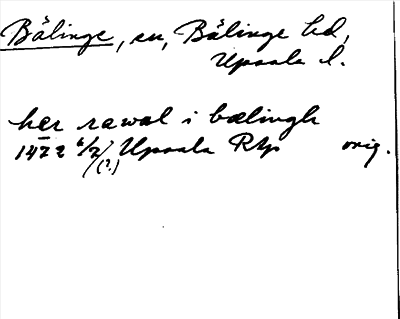 Bälinge, sn, Bälinge hd,
Uppsala l.
her rawal i bælingh
1472 6/2 Upsala RAp orig.
(?)